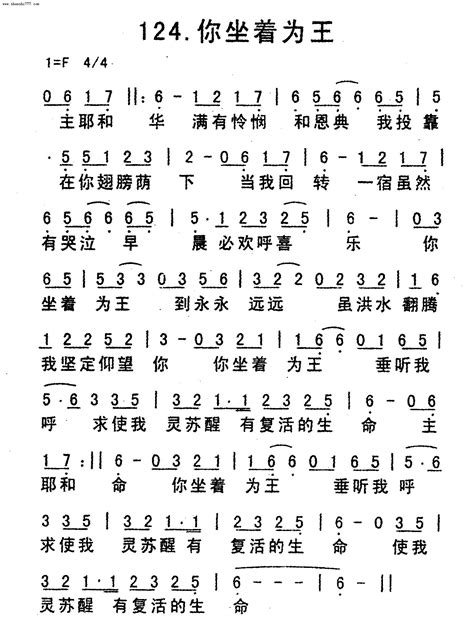 124.你坐着为王
1=F 4/4
0 6 1 7 | ||: 6 - 1 2 1 7 | 6 5 6 6 6 5 | 5
主耶和 华 满有怜悯 和恩典 我投靠
· 5 5 1 2 3 | 2 - 0 6 1 7 | 6 - 1 2 1 7 |
在你翅膀荫 下 当我回转 一宿虽然
6 5 6 6 6 5 | 5 · 1 2 3 2 5 | 6 - - 0 3
有哭泣早 晨必欢呼喜 乐 你
6 5 | 5 3 3 0 3 5 6 | 3 2 2 0 2 3 2 | 1 6
坐着 为王 到永永 远远 虽洪水 翻腾
1 2 2 2 5 | 3 - 0 3 2 1 | 1 6 6 0 1 6 5 |
我坚定仰望 你 你坐着 为王 垂听我
5 · 6 3 3 5 | 3 2 1 1 · 1 | 2 3 2 5 | 6 - 0 6
呼 求使我 灵苏醒 有复活的生 命 主
1 7 :|| 6 - 0 3 2 1 | 1 6 6 0 1 6 5 | 5 · 6
耶和 命 你坐着 为王 垂听我 呼
3 3 5 | 3 2 1 1 · 1 | 2 3 2 5 | 6 - 0 3 3 5 |
求使我 灵苏醒 有 复活的生 命 使我
3 2 1 1 · 1 | 2 3 2 5 | 6 - - - | 6 - - ||
灵苏醒 有复活的生 命